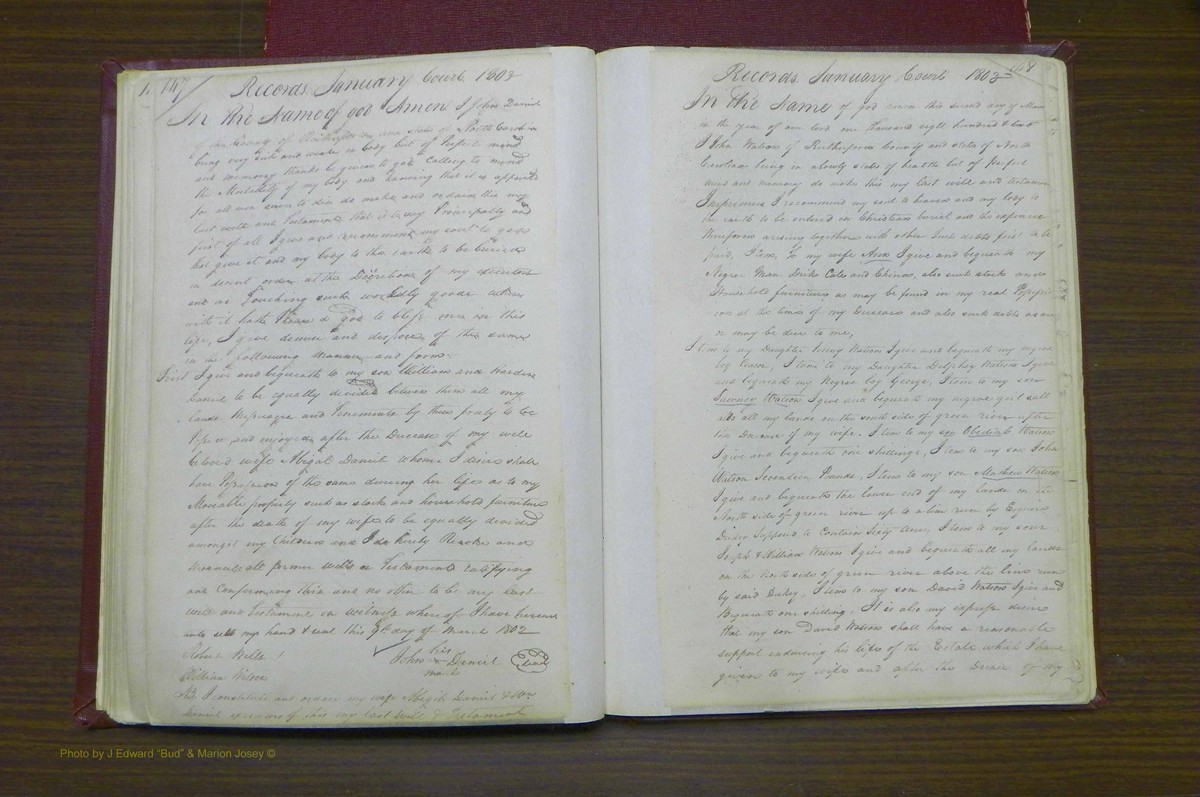 147
Records January Court 1802
In the Name of god Amen I John Daniel
of the County of Rutherford and state of North Carolina
being very sick and weake in body but of Perfect mind
and memory thanks be given to god Calling to mind
the Mortality of my body and knowing that it is appointed
for all men once to die do make and ordain this my
last will and Testament that is to say Principally and
first of all I give and recommend my soul to god
that gave it and my body to the earth to be buried
in decent order at the Discretion of my executors
and as Touching such worldly goods
with it hath Pleased god to bless me in this
life, I give demise and dispose of the same
in the following manner and form.
First I give and bequeath to my son William and
Daniel to be equally divided between them all my
Lands Messuages and Tenements by them freely to be
and enjoyed after the Decease of my well
beloved wife Abigal Daniel whome I desire shall
have Possession of the same dureing her life as to my
Moveable property such as stock and household furniture
after the death of my wife to be equally devided
amongst my Children and I do hereby Revoke and
disannul all former wills or Testaments ratifying
and Confirming this and no other to be my last
will and testament in witness whereof I have hereunto
set my hand & seal this day of March 1802
Robert Wells
John his mark Daniel Seal
William Wilson
NB I constitute and ordain my wife Abigal Daniel &
Daniel of this my last will & Testament
148
Records January Court 1802
In the Name of god amen this second day of
in the year of our lord one thousand eight hundred & two
I John Watson of Rutherford County and state of North
Carolina being in a lowly state of health but of Perfect
mind and memory do make this my last will and testament
Imprimis I recommend my soul to heaven and my body to
the earth to be entered in Christian burial and the expence
therefrom arising together with other Just debts first to be
paid, Item, To my wife Ann I give and bequeath my
Negroes Man Dick Cate and China, also such stock and
Household furniture as may be found in my real Possession
at the time of my Decease and also such debts as are
or may be due to me,
Item to my Daughter Watson I give and bequeath my negroe
boy, Item to my Daughter Watson I give
and bequeath my Negroe boy George, Item to my son
Watson I give and bequeath my negroe girl
also all my lands on the south side of green river after
the Decease of my wife. Item to my son Obediah Watson
I give and bequeath five shillings, Item to my son John
Watson Seventeen Pounds, Item to my son Mathew Watson
I give and bequeath the lower end of my lands on the
North side of green river up to a line run by Esquire
Dickey Supposed to Contain Sixty acres, Item to my sons
Joseph & William Watson I give and bequeath all my lands
on the North side of green river above the line run
by said Dickey, Item to my son David Watson I give and
Bequeath one shilling. It is also my express desire
that my son David Watson shall have a reasonable
support endureing his life of the Estate which I have
given to my wife and after the Decase of my
Photo by J Edward “Bud” & Marion Josey ©